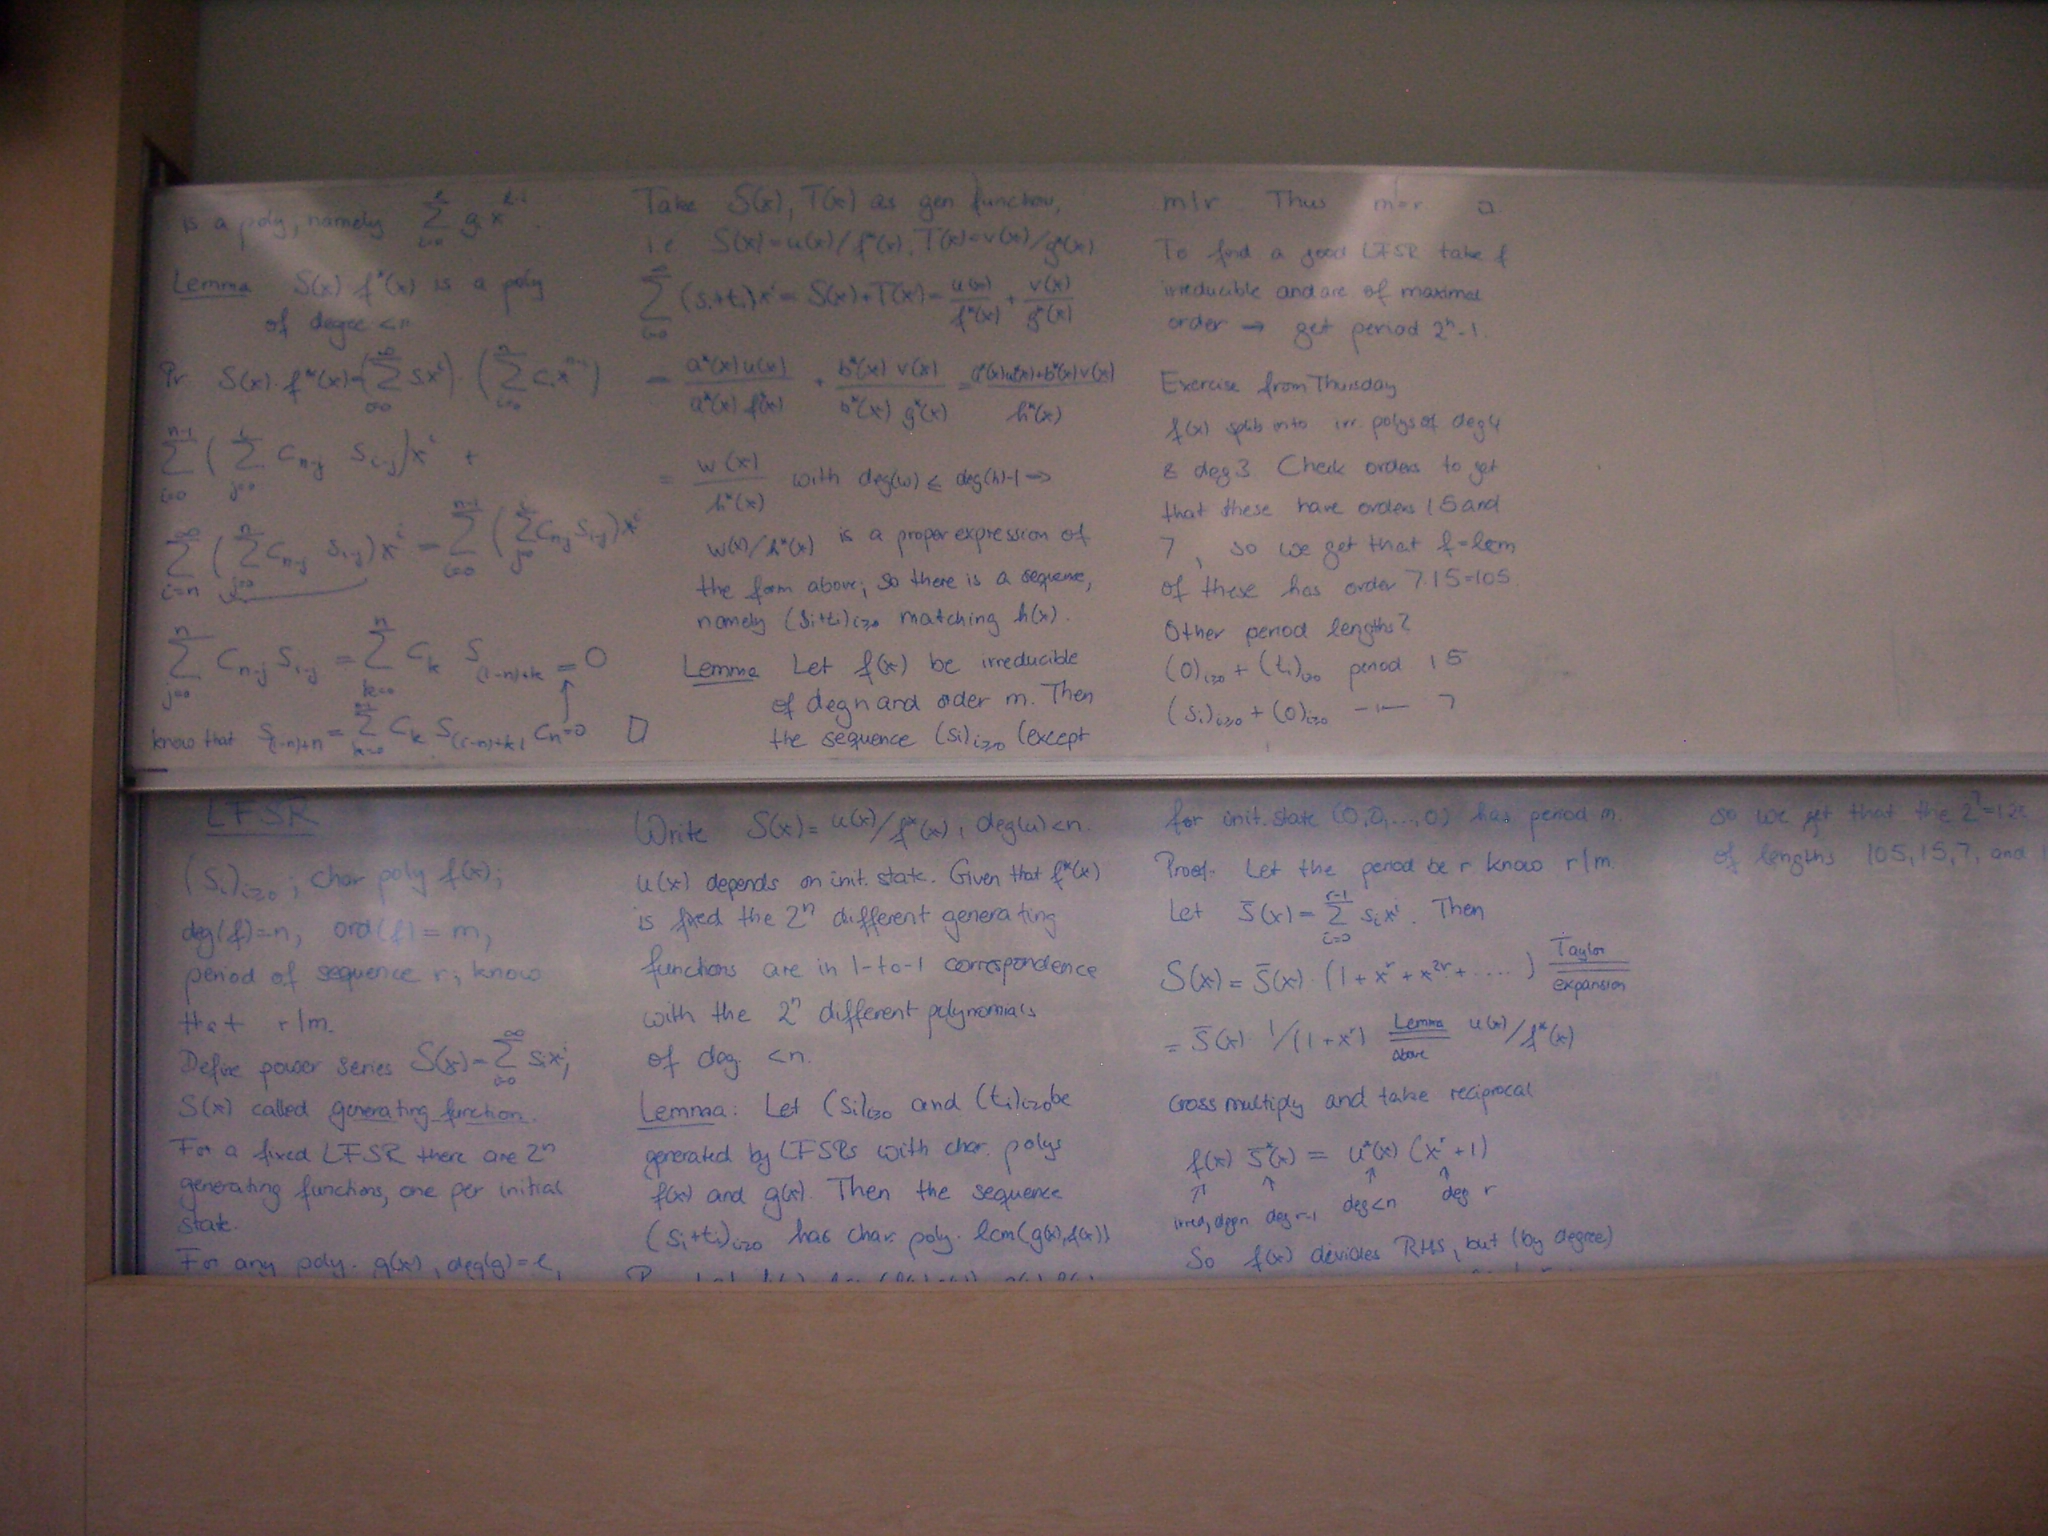 is a poly, namely ∑_{i=0}^{ℓ} g_i x^{ℓ-i}.
Lemma S(x) f*(x) is a poly
of degree <n
Pr S(x)·f*(x)=(∑_{i=0}^{∞} s_i x^i)·(∑_{i=0}^{n} c_i x^{n-i})
∑_{i=0}^{n-1} (∑_{j=0}^{i} c_{n-j} s_{i-j})x^i +
∑_{i=n}^{∞} (∑_{j=0}^{n} c_{n-j} s_{i-j})x^i = ∑_{i=0}^{n-1} (∑_{j=0}^{i} c_{n-j} s_{i-j})x^i
∑_{j=0}^{n} c_{n-j} s_{i-j} = ∑_{k=0}^{n} c_k s_{(i-n)+k} = 0
↑
know that s_{(i-n)+n} = ∑_{k=0}^{n-1} c_k s_{(i-n)+k}, c_n=0 □
Take S(x), T(x) as gen function,
i.e. S(x)=u(x)/f*(x), T(x)=v(x)/g*(x)
∑_{i=0}^{∞} (s_i+t_i)x^i = S(x)+T(x) = u(x)/f*(x) + v(x)/g*(x)
= a*(x)u(x)/a*(x)f*(x) + b*(x)v(x)/b*(x)g*(x) = a*(x)u(x)+b*(x)v(x)/h*(x)
= w(x)/h*(x) with deg(w) ≤ deg(h)-1 →
w(x)/h*(x) is a proper expression of
the form above; so there is a sequence,
namely (s_i+t_i)_{i≥0} matching h(x).
Lemma Let f(x) be irreducible
of deg n and order m. Then
the sequence (s_i)_{i≥0} (except
m|r. Thus m=r. □
To find a good LFSR take f
irreducible and are of maximal
order → get period 2^n-1.
Exercise from Thursday
f(x) split into irr. polys of deg 4
& deg 3. Check orders to get
that these have orders 15 and
7, so we get that f=lcm
of these has order 7·15=105.
Other period lengths?
(0)_{i≥0} + (t_i)_{i≥0} period 15
(s_i)_{i≥0} + (0)_{i≥0} -"- 7
LFSR
(s_i)_{i≥0}; char poly f(x);
deg(f)=n, ord(f)=m,
period of sequence r; know
that r|m.
Define power series S(x)=∑_{i=0}^{∞} s_i x^i;
S(x) called generating function.
For a fixed LFSR there are 2^n
generating functions, one per initial
state.
For any poly. g(x), deg(g)=ℓ,
Write S(x)=u(x)/f*(x), deg(u)<n.
u(x) depends on init. state. Given that f*(x)
is fixed the 2^n different generating
functions are in 1-to-1 correspondence
with the 2^n different polynomials
of deg. <n.
Lemma: Let (s_i)_{i≥0} and (t_i)_{i≥0} be
generated by LFSRs with char. polys
f(x) and g(x). Then the sequence
(s_i+t_i)_{i≥0} has char. poly. lcm(g(x),f(x))
for init. state (0,0,...,0) has period m.
Proof: Let the period be r know r|m.
Let S̄(x)=∑_{i=0}^{r-1} s_i x^i. Then
S(x)=S̄(x)·(1+x^r+x^{2r}+....) Taylor
expansion
= S̄(x)·1/(1+x^r) Lemma u(x)/f*(x)
above
Cross multiply and take reciprocal
f(x) S̄*(x) = u*(x) (x^r+1)
↑ ↑ ↑ ↑
irred, deg n deg r-1 deg<n deg r
So f(x) devides RHS, but (by degree)
so we get that the
of lengths 105, 15, 7, and